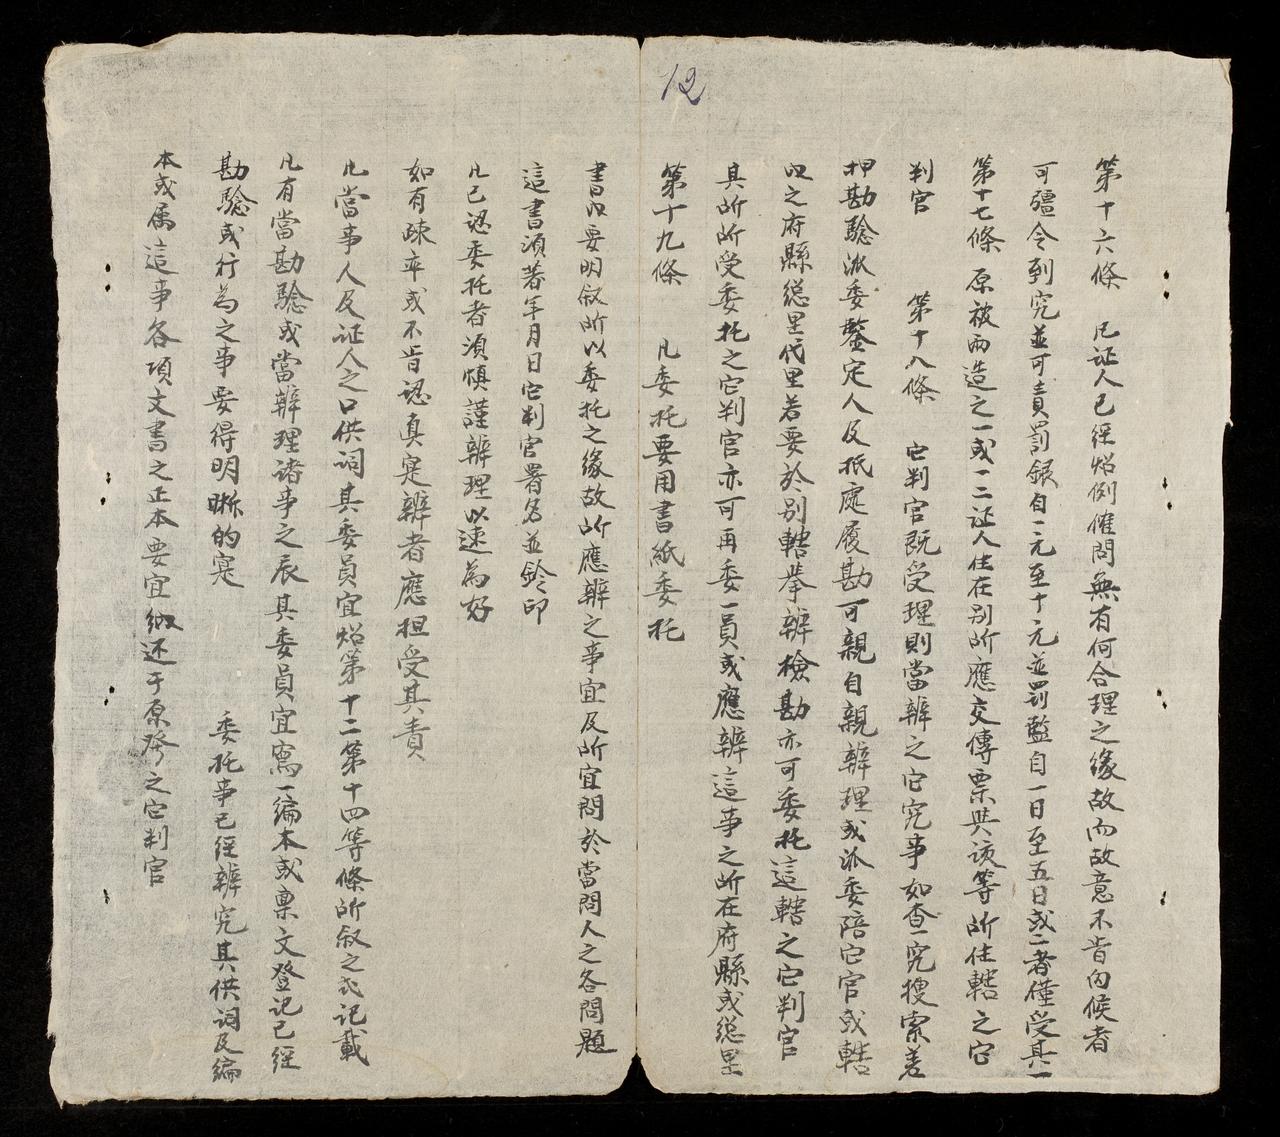 12
第十六條 凡证人已經炤例催問無有何合理之缘故而故意不肯向候者
可彊令到究並可責罰銀自一元至十元並罰監自一日至五日或二者僅受其一
第十七條 原被両造之一或一二证人住在别所應交傳票與该等所住轄之它
判官 第十八條 它判官既受理則當辨之它究事如查究搜索差
押勘驗派委鑒定人及抵處履勘可親自親辨理或派委陪它官或轄
収之府縣總里代里若要於别轄挙辨檢勘亦可委托這轄之它判官
具所所受委托之它判官亦可再委一員或應辨這事之所在府縣或總里
第十九條 凡委托要用書紙委托
書収要明叙所以委托之缘故所應辨之事宜及所宜問於當問人之各問題
這書湏著年月日它判官署名並鈴印
凡已认委托者湏慎謹辨理以速為好
如有疎率或不肯认真寔辨者應担受其責
凡當事人及证人之口供词其委員宜炤第十二第十四等條所叙之式记載
凡有當勘驗或當辨理诸事之辰其委員宜寫一編本或禀文登记已經
勘驗或行為之事要得明晰的寔 委托事已經辨究其供词及編
本或属這事各項文書之正本要宜缴还于原發之它判官